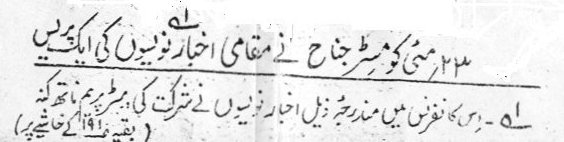 ۵۱
۲۳؍ مئی کو مسٹر جناح نے مقامی اخبار نویسوں کی ایک پریس
۵۱ - اِس کانفرنس میں مندرجۂ ذیل اخبار نویسوں نے شرکت کی مسٹر پریم ناتھ کنہ
(بقیہ ۱۹۱ کے حاشیے پر)